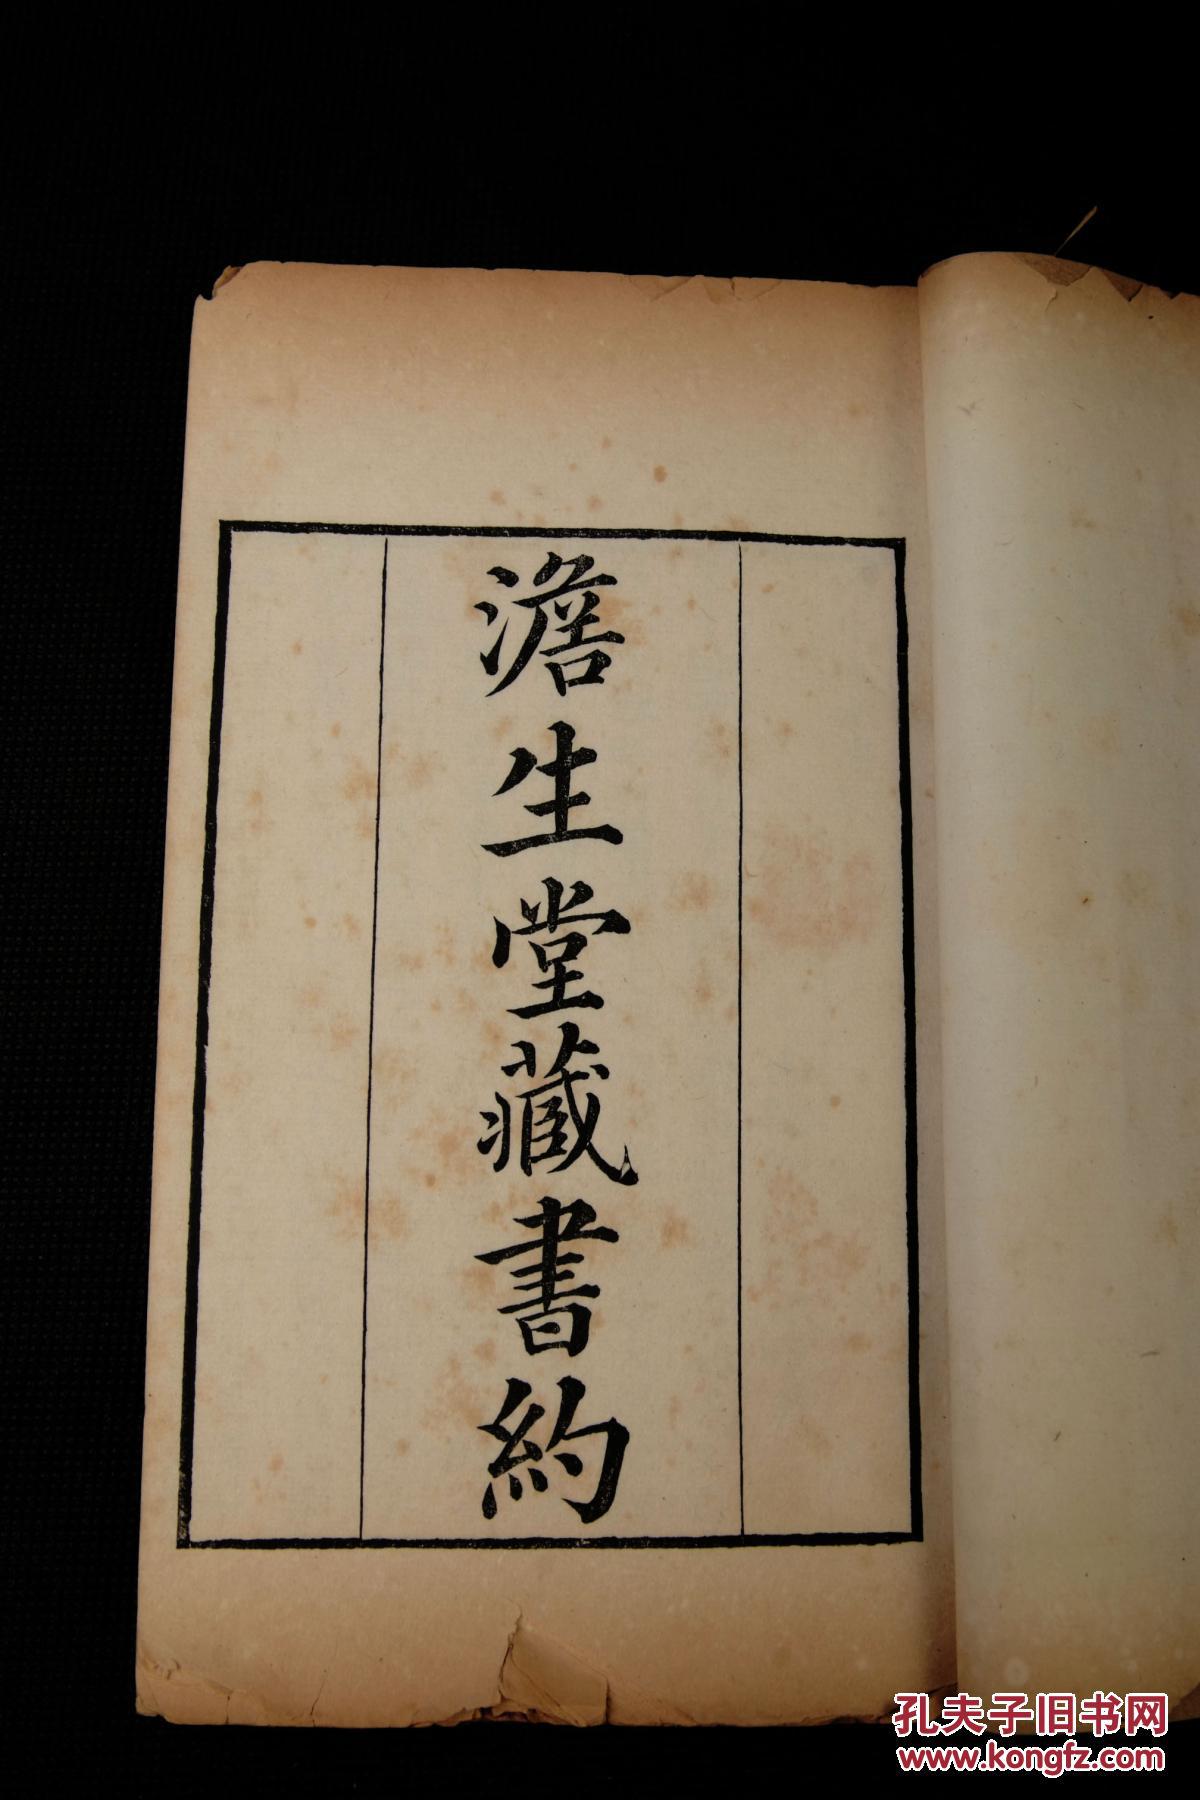 澹生堂藏書約
孔夫子旧书网
www.kongfz.com